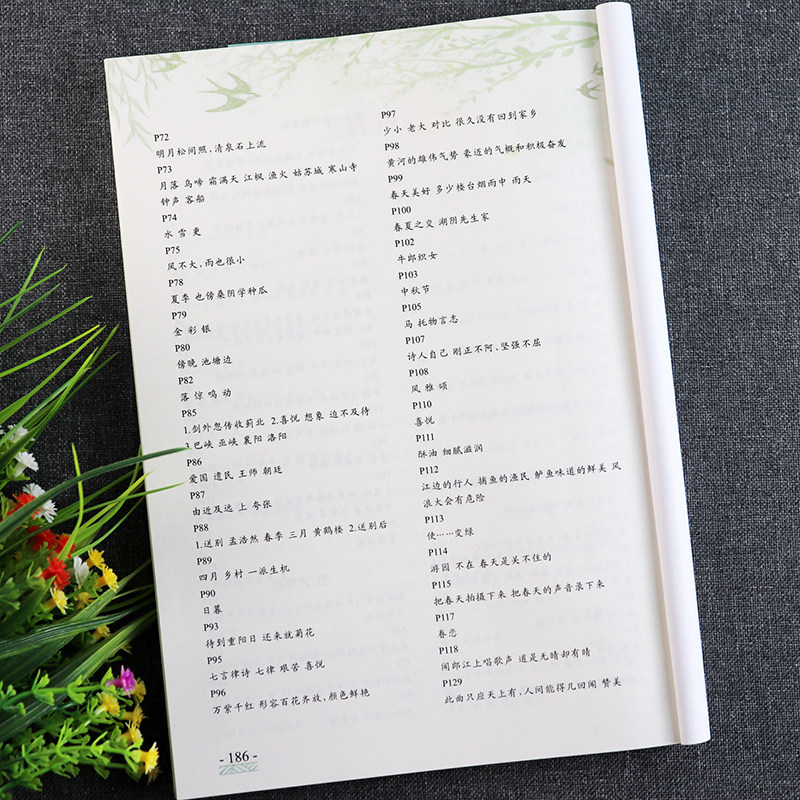 P72
明月松间照,清泉石上流
P73
月落 乌啼 霜满天 江枫 渔火 姑苏城 寒山寺
钟声 客船
P74
水 雪 更
P75
风不大,雨也很小
P78
夏季 也傍桑阴学种瓜
P79
金 彩 银
P80
傍晚 池塘边
P82
落 惊 鸣 动
P85
1.剑外忽传收蓟北 2.喜悦 想象 迫不及待
3.巴峡 巫峡 襄阳 洛阳
P86
爱国 遗民 王师 朝廷
P87
由近及远 上 夸张
P88
1.送别 孟浩然 春季 三月 黄鹤楼 2.送别后
P89
四月 乡村 一派生机
P90
日暮
P93
待到重阳日 还来就菊花
P95
七言律诗 七律 艰苦 喜悦
P96
万紫千红 形容百花齐放,颜色鲜艳
P97
少小 老大 对比 很久没有回到家乡
P98
黄河的雄伟气势 豪迈的气概和积极奋发
P99
春天美好 多少楼台烟雨中 雨天
P100
春夏之交 湖阴先生家
P102
牛郎织女
P103
中秋节
P105
马 托物言志
P107
诗人自己 刚正不阿,坚强不屈
P108
风 雅 颂
P110
喜悦
P111
酥油 细腻滋润
P112
江边的行人 捕鱼的渔民 鲈鱼味道的鲜美 风
浪大会有危险
P113
使……变绿
P114
游园 不在 春天是关不住的
P115
把春天拍摄下来 把春天的声音录下来
P117
眷恋
P118
闻郎江上唱歌声 道是无晴却有晴
P129
此曲只应天上有,人间能得几回闻 赞美
- 186 -